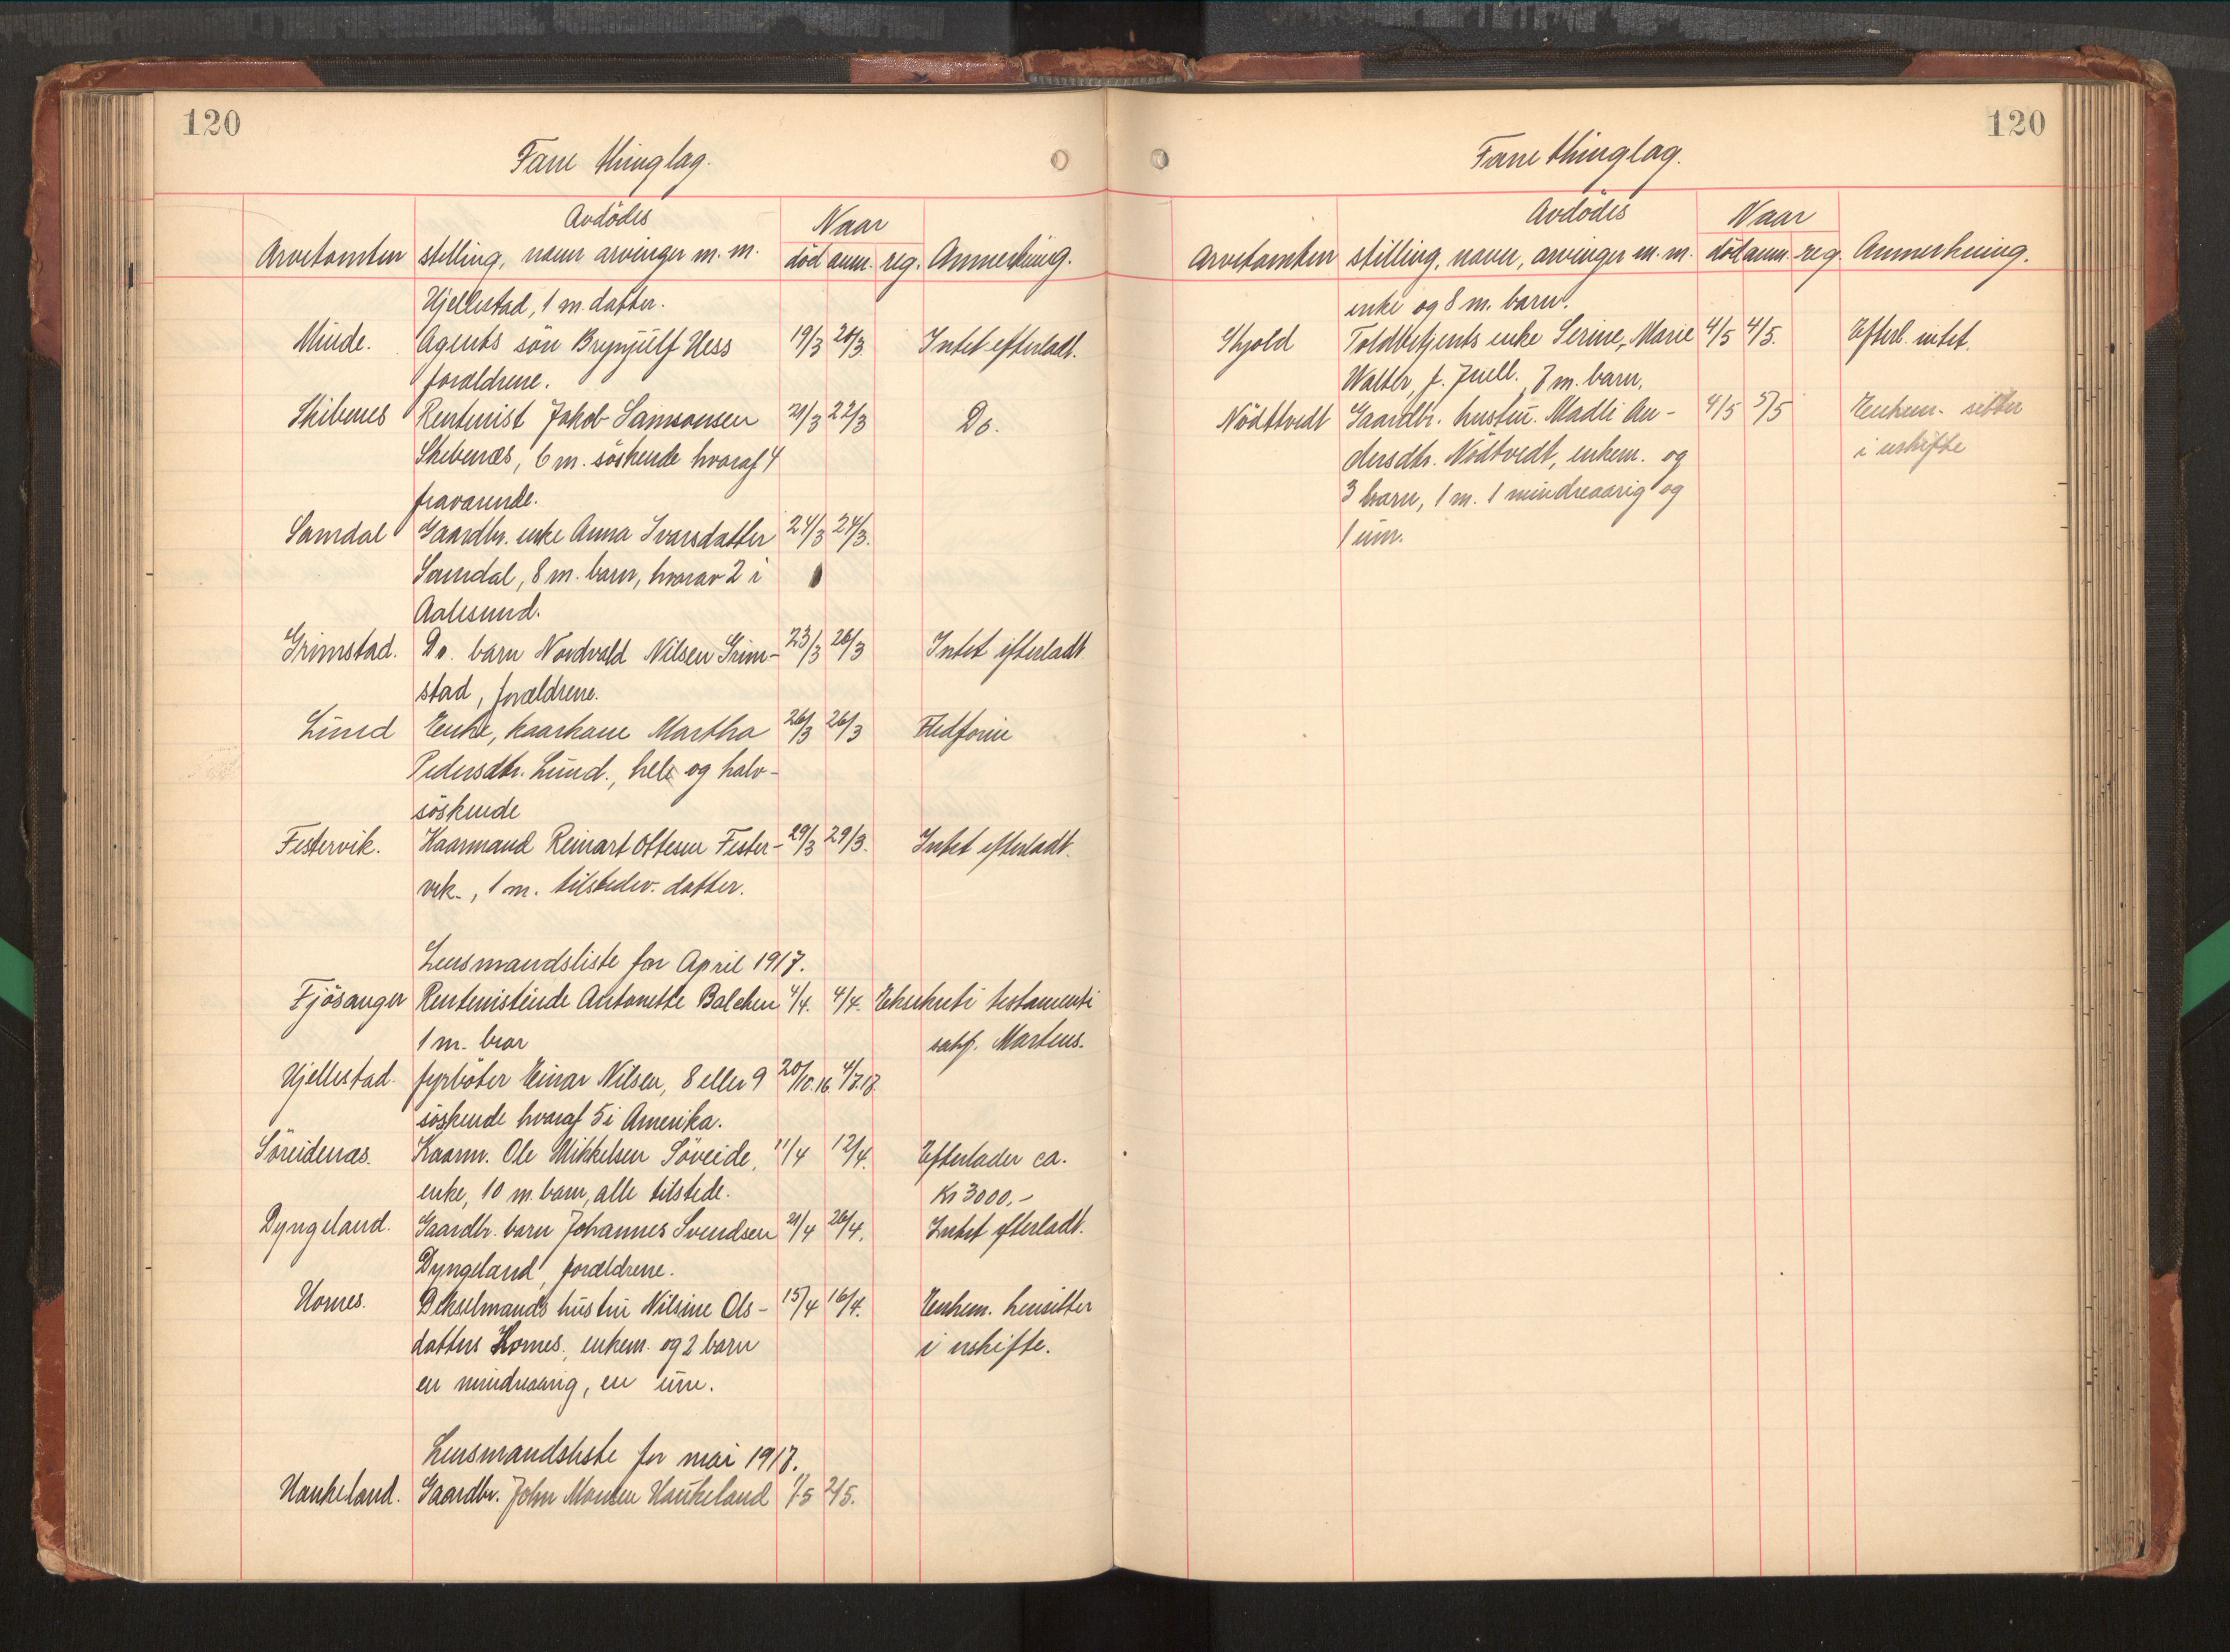 120
Fane thinglag.
Avdødes
Naar
Arvetomten stilling, navn arvinger m. m. død anm. reg. Anmerkning.
Hjellestad, 1 m. datter.
Minde. Agents søn Brynjulf Hess 19/3 20/3 Intet efterladt.
forældrene.
Skibenes Rentenist Jakob Samsonsen 21/3 22/3 Do.
Skibenæs, 6 m. søskende hvoraf 4
fraværende.
Samdal Gaardbr. enke Anna Ivarsdatter 24/3 24/3.
Samdal, 8 m. barn, hvorav 2 i
Aalesund.
Grimstad. Do. barn Nordvald Nilsen Grim- 23/3 26/3 Intet efterladt
stad, forældrene.
Lund Enke, kaarkone Martha 26/3 26/3 Fledførin
Pedersdtr. Lund., hel og halv-
søskende
Festervik. Kaarmand Reinart Ottesen Fester- 29/3 29/3. Intet efterladt.
vik., 1 m. tilstedev. datter.
Lensmandsliste for April 1917.
Fjøsanger Rentenistinde Antonette Balchen 4/4. 4/4. Eksekuti testamenti
1 m. bror sakf. Martens.
Hjellestad. fyrbøter Einar Nilsen, 8 eller 9 20/10.16. 4/4.17.
søskende hvoraf 5 i Amerika.
Søreidenæs. Kaarm. Ole Mikkelsen Søreide, 11/4 12/4. Efterlader ca.
enke, 10 m. barn, alle tilstede. Kr 3000,-
Dyngeland. Gaardbr. barn Johannes Svendsen 21/4 26/4. Intet efterladt.
Dyngeland, forældrene.
Homes. Dikselmands hustru Nilsine Ols- 15/4 16/4. Enkem. hensitter
datters Homes., enkem. og 2 barn i uskifte.
en mindreaarig, en um.
Lensmandsliste for mai 1917.
Haukeland. Gaardbr. John Monsen Haukeland 1/5 2/5.
120
Fane thinglag.
Avdødes
Naar
Arvetomten stilling, navn, arvinger m. m. død anm. reg. Anmerkning.
enke og 8 m. barn.
Skjold Toldbetjents enke Serine, Marie 4/5 4/5. Efterl. intet.
Walter, f. Juell. 7 m. barn.
Nødttvedt Gaardbr. hustru. Madli An- 4/5 5/5 Enkem. sitter
dersdtr. Nødtvedt, enkem. og i uskifte
3 barn, 1 m. 1 mindreaarig og
1 um.